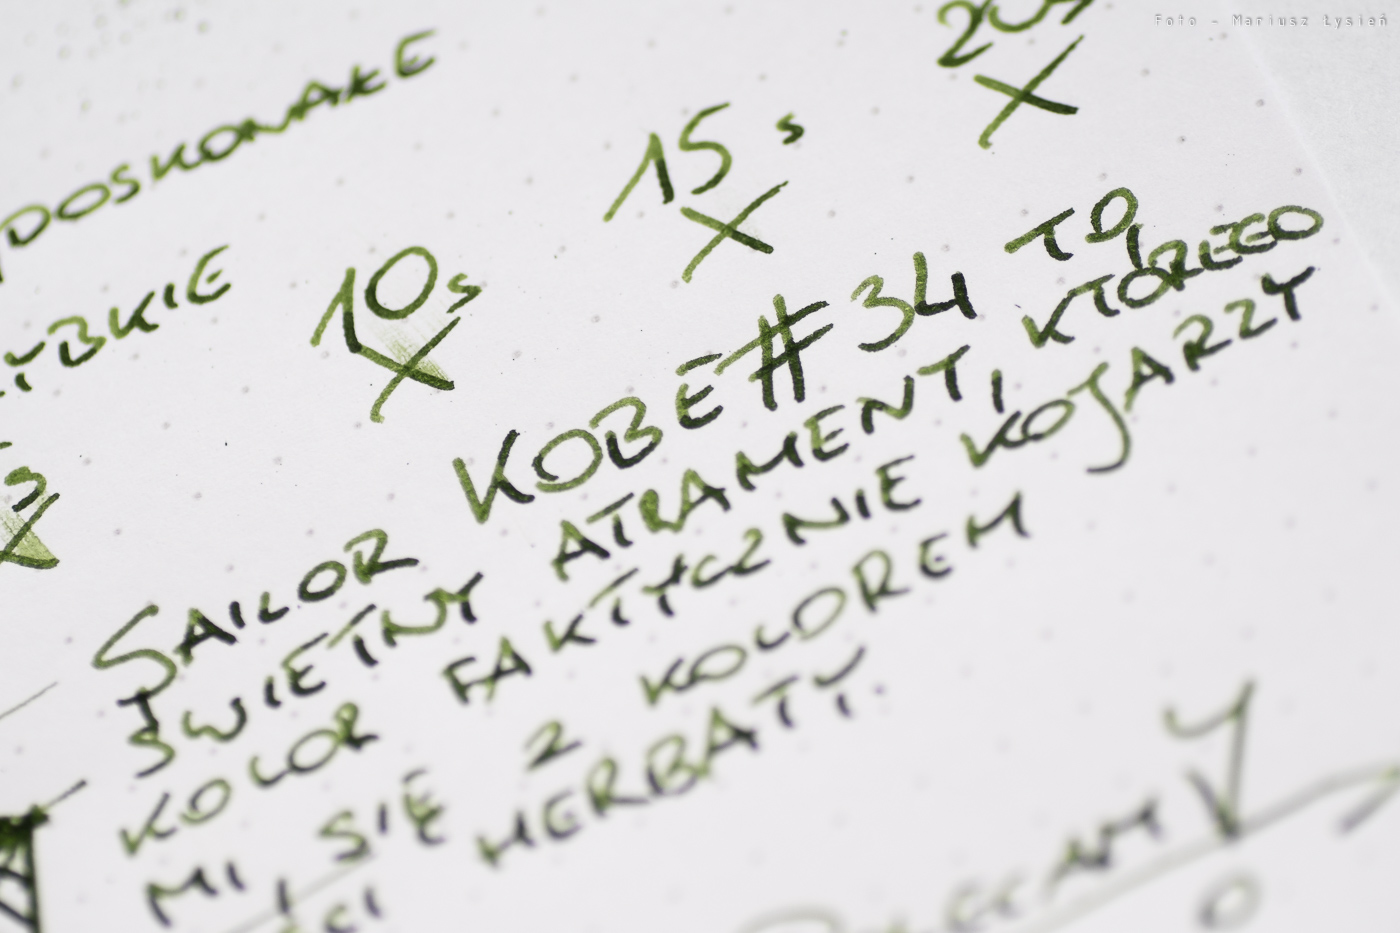 Foto - Mariusz Łysień
DOSKONAŁE
10s
15s
SAILOR KOBE #34 TO
ŚWIETNY ATRAMENT, KTÓREGO
KOLOR FAKTYCZNIE KOJARZY
MI SIĘ Z KOLOREM
HERBATY.